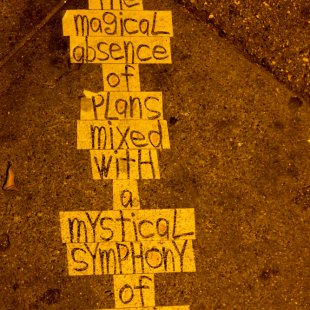 The
magical
absence
of
PLANS
mixed
witH
a
mYSticaL
SYMPHONY
of